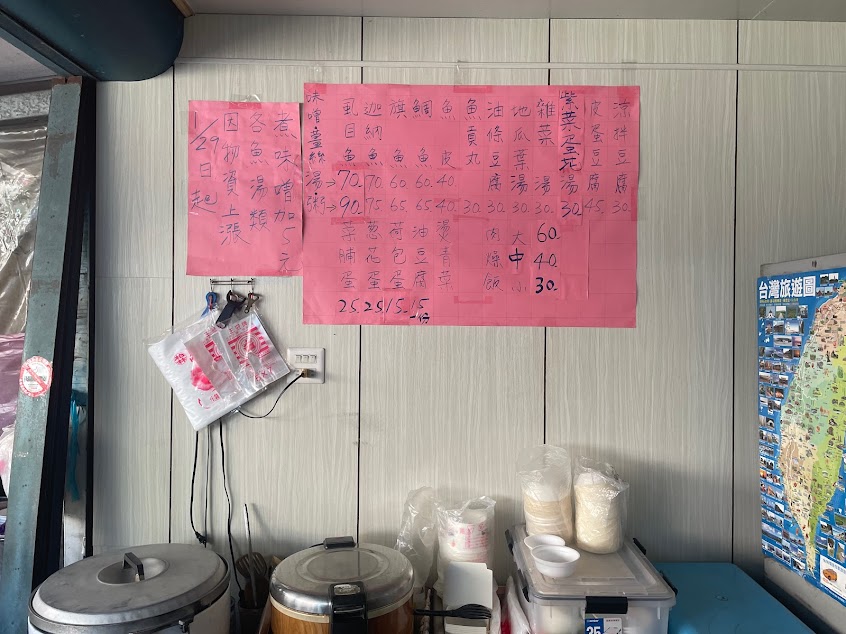 1/29日起
因物資上漲
各魚湯類
煮味噌加5元
味噌薑絲湯→
粥→
虱目魚 70. 90.
迦納魚 70. 75.
旗魚 60. 65.
鯛魚 60. 65.
魚皮 40. 40.
魚貢丸 30.
油條豆腐 30.
地瓜葉湯 30.
雜菜湯 30.
紫菜蛋花湯 30.
皮蛋豆腐 45.
涼拌豆腐 30.
菜脯蛋 25.
葱花蛋 25
荷包蛋 15.
油豆腐 15
燙青草
肉燥飯
大 60.
中 40.
小 30.
台灣旅遊圖
35